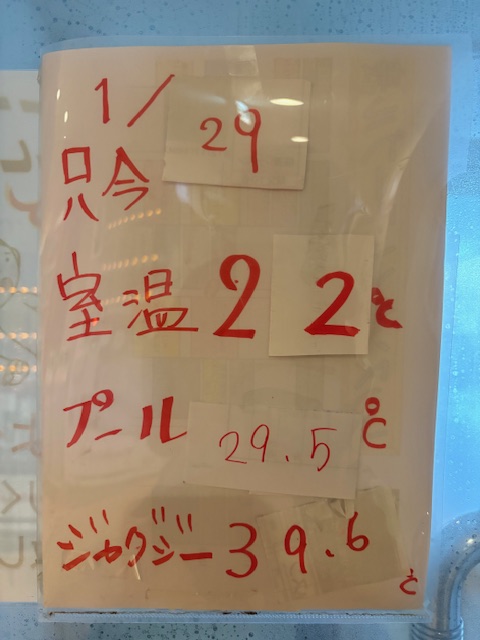 1/29
只今
室温22℃
プール29.5℃
ジャグジー39.6℃